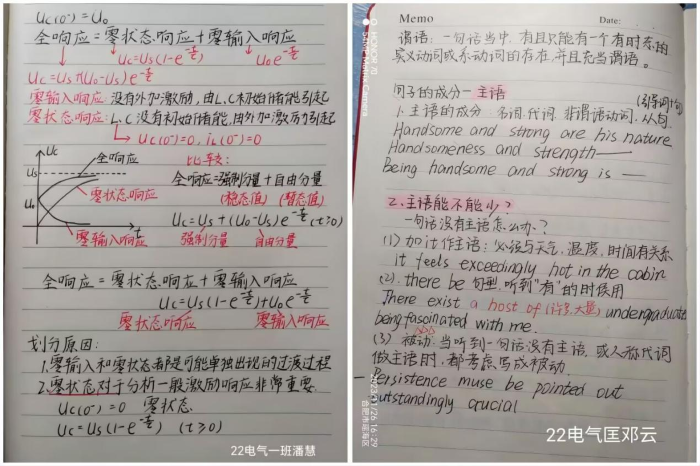 Uc(0⁻)=U₀
全响应=零状态响应+零输入响应
Uc=Us(1-e^(-t/τ)) U₀e^(-t/τ)
Uc=Us+(U₀-Us)e^(-t/τ)
零输入响应:没有外加激励,由L.C初始储能引起
零状态响应:L.C没有初始储能,由外加激励引起
Uc(0⁻)=0, iL(0⁻)=0
Uc
全响应
Us
零状态响应
U₀
零输入响应
t
比较:
全响应=强制分量+自由分量
(稳态值) (暂态值)
Uc=Us+(U₀-Us)e^(-t/τ) (t≥0)
强制分量 自由分量
全响应=零状态响应+零输入响应
Uc=Us(1-e^(-t/τ))+U₀e^(-t/τ)
零状态响应 零输入响应
划分原因:
1.零输入和零状态都是可能单独出现的过渡过程
2.零状态对于分析一般激励响应非常重要
Uc(0⁻)=0 零状态
Uc=Us(1-e^(-t/τ)) (t≥0)
22电气一班潘慧
Memo Date:
谓语:一句话当中,有且只能有一个有时态的
实义动词或系动词的存在,并且充当谓语。
句子的成分—主语
(引导词+句)
1.主语的成分:名词.代词.非谓语动词.从句
Handsome and strong are his nature
Handsomeness and strength —
Being handsome and strong is —
2.主语能不能少?
一句话没有主语怎么办?
(1)加it作主语:必须与天气,温度,时间有关系
it feels exceedingly hot in the cabin
(2).there be 句型,听到"有"的时候用
There exist a host of (许多,大量) undergraduate
being fascinated with me.
(3)被动:当听到一句话没有主语,或人称代词
做主语时,都考虑写成被动
Persistence muse be pointed out
outstandingly crucial
HONOR 70
54MP Matrix Camera
2023/11/26 16:29
合肥市瑶海区
22电气匡邓云